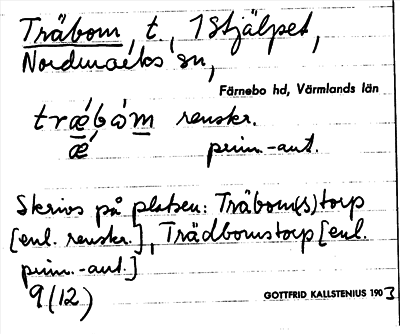 Träbom, t., 1 Stjälpet,
Nordmarks sn,
Färnebo hd, Värmlands län
trǽbòm renskr.
ǽ prim.-ant.
Skrivs på platsen: Träbom(s)torp
[enl. renskr.], Trädbomstorp [enl.
prim.-ant.]
9(12)
GOTTFRID KALLSTENIUS 1903